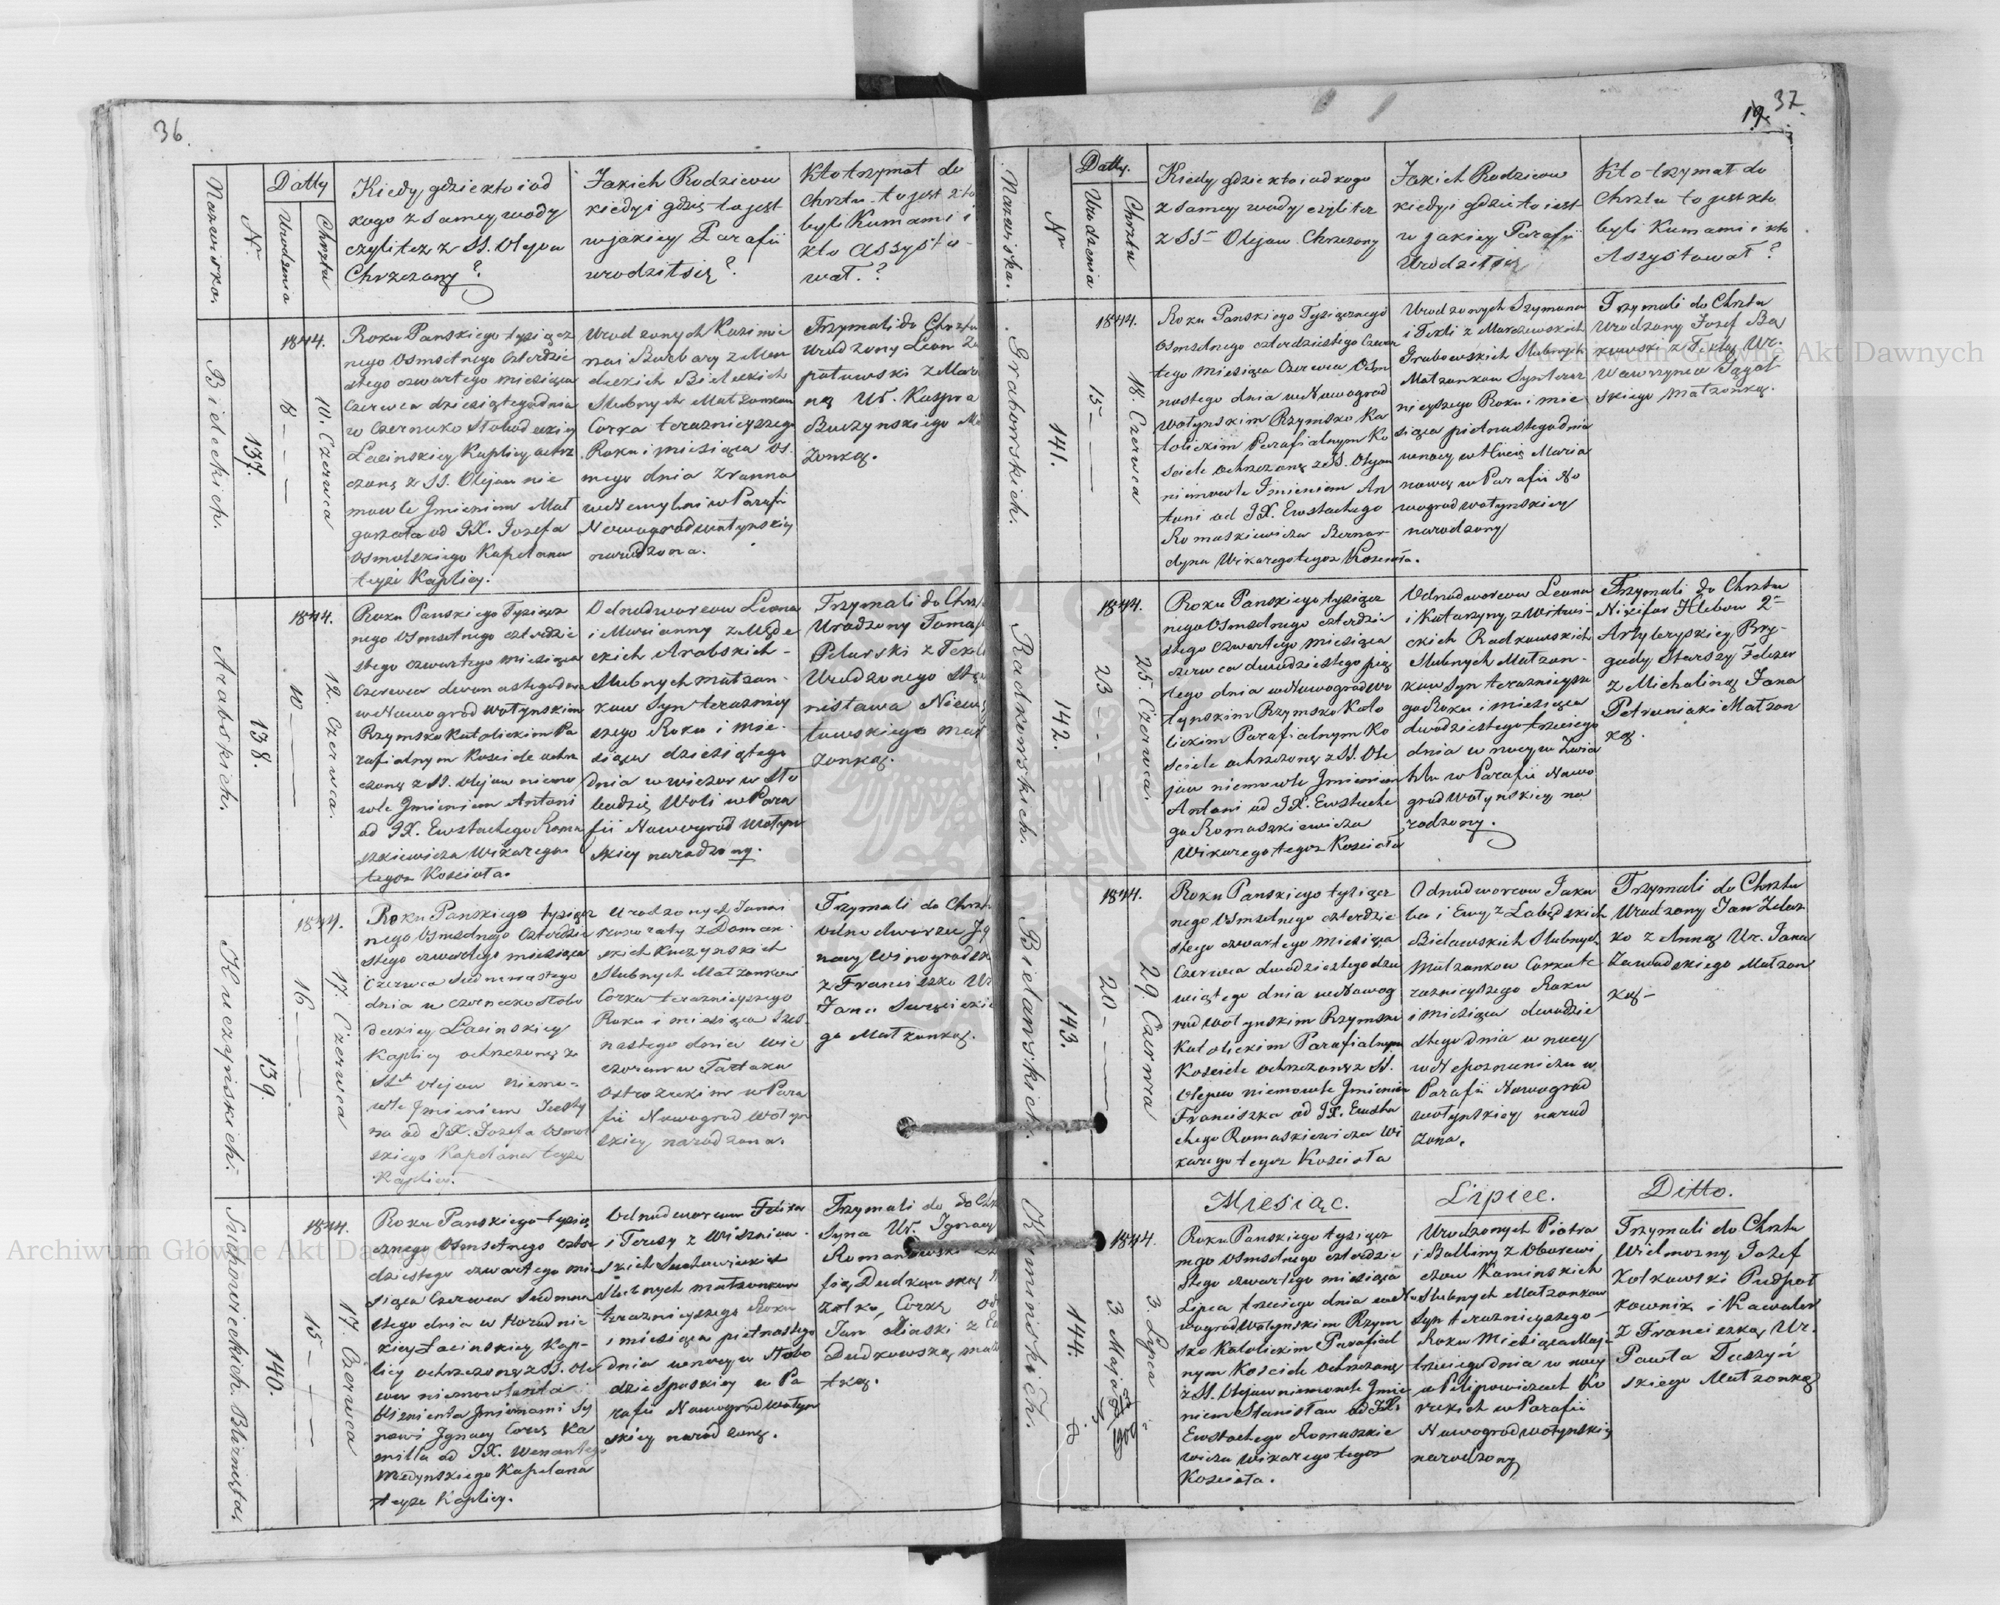 36
Nazwisko.
N.
Datty
Urodzenia
Chrztu
Kiedy gdzie kto i od
kogo z samey wody
czyli też z SS. Olejow
Chrzczony?
Jakich Rodzicow
kiedy i gdzie to jest
w jakiey Parafii
urodził się?
Kto trzymał do
Chrztu to jest kto
byli Kumami i
kto Assysto-
wał.?
Bieleckich.
137.
1844.
8
10. Czerwca
Roku Panskiego tysiącz
nego Osmsetnego czterdzie
stego czwartego miesiąca
Czerwca dziesiątego dnia
w Czernicko Słobodzkiey
Łacinskiey Kaplicy ochrz
czona z SS. Olejow nie
mowle Jmieniem Mał
gorzata od JX. Jozefa
Osmolskiego Kapelana
teyże Kaplicy.
Urodzonych Kazimie
rza i Barbary z
Bieleckich
Slubnych Małzonkow
Corka teraznieyszego
Roku i miesiąca os
mego dnia z ranna
w Parafii
Nowogrodwołynskiey
narodzona.
Trzymali do Chrztu
Urodzony Leon
z
Ur. Kaspra
Buczynskiego
żonką.
Arabskich.
138.
1844.
10
12. Czerwca.
Roku Panskiego Tysiącz
nego Osmsetnego czterdzie
stego czwartego miesiąca
Czerwca dwunastego dnia
w Nowogrod wołynskim
Rzymsko Katolickim Pa
rafialnym Kosciele ochrz
czony z SS. Olejow niemo
wle Jmieniem Antoni
od JX. Ewstachego Roma
szkiewicza Wikarego
tegoz Kosciola.
Odnodworcow Leona
i Maryanny z
Arabskich
Slubnych małzon-
kow Syn terazniey
szego Roku i mie-
siąca dziesiątego
dnia w wieczor w Sło
bodzie Woli w Para
fii Nowogrod Wołyn
skiey narodzony.
Trzymali do Chrz
Urodzony Tomasz
Pelarski z Teklą
Urodzonego Sta
nisława
małzonką.
Kuczyńskich.
139.
1844.
16
17. Czerwca
Roku Panskiego tysiącz
nego Osmsetnego Czterdzie
stego czwartego miesiąca
Czerwca siedmnastego
dnia w Czernecko słobo
dzkiey Łacinskiey
Kaplicy ochrzczona z
SSch Olejow niemo-
wle Jmieniem Justy
na od JX. Jozefa Osmol
skiego Kapelana teyże
Kaplicy.
Urodzonych Jana i
z Doman-
skich Kuczynskich
Slubnych Małzonkow
Corka teraznieyszego
Roku i miesiąca szes-
nastego dnia wie
czorem w Tartaku
Ostrożeckim w Para
fii Nowogrod Wołyn
skiey narodzona.
Trzymali do Chrztu
Odnodworzec Jg
nacy Winogrodzki
z Franciszką Ur
Jana
go Małzonką.
Suchowieckich. Bliznięta.
140.
1844.
15
17. Czerwca
Roku Panskiego tysią
cznego Osmsetnego czter
dziestego czwartego mie
siąca Czerwca siedmna
stego dnia w
Łacinskiey Kap-
licy ochrzczone z SS. Ole
iow niemowlenta
bliznienta Jmionami Sy
nowi Jgnacy Corce Ka
milla od JX. Wenantego
Medynskiego Kapelana
teyże Kaplicy.
Odnodworcow Felixa
i Teresy z Wiszniow-
skich Suchowieckich
Slubnych małzonkow
teraznieyszego Roku
i miesiąca piętnastego
dnia w nocy w Słobo
dzie w Pa
rafii Nowogrod Wołyn
skiey narodzone.
Trzymali do Ch
Syna Ur. Jgnacy
Romanowski z
Dudkowską
Corkę
Jan Olinski z
Dudkowską małż
19.
37.
Nazwiska.
Nr
Datty.
Urodzenia
Chrztu
Kiedy gdzie kto i od kogo
z samey wody czyli tez
z SS Olejow Chrzczony
Jakich Rodzicow
kiedy i gdzie to iest
w jakiey Parafii
Urodził się
Kto trzymał do
Chrztu to jest kto
byli Kumami i kto
Aszystował?
Grabowskich.
141.
1844.
15
18. Czerwca
Roku Panskiego Tysiącznego
Osmsetnego czterdziestego Czwar
tego miesiąca Czerwca Osm
nastego dnia w Nowogrod
wołynskim Rzymsko Ka
tolickim Parafialnym Ko
sciele ochrzczony z SS. Olejow
niemowle Jmieniem An
toni od JX. Ewstachego
Romaskiewicza Bernar
dyna Wikarego tegoz Kosciola.
Urodzonych Szymona
i Tekli z Marszewskich
Grabowskich Slubnych
Małzonkow Syn teraz
nieyszego Roku i mie
siąca piętnastego dnia
w nocy w Hucie Maria
nowey w Parafii No
wogrod wołynskiey
narodzony
Trzymali do Chrztu
Urodzony Jozef Bą
kowski z Teklą Ur.
Wawrzynca
skiego Małzonką.
Radkowskich.
142.
1844.
23
25. Czerwca.
Roku Panskiego tysiącz
nego Osmsetnego czterdzie
stego czwartego miesiąca
czerwca dwudziestego pią
tego dnia w Nowogrod Wo
łynskim Rzymsko Kato
lickim Parafialnym Ko
sciele ochrzczony z SS. Ole
jow niemowle Jmieniem
Antoni od JX. Ewstache
go Romaszkiewicza
Wikarego tegoz Kosciola
Odnodworcow Leona
i Katarzyny z Witwi-
ckich Radkowskich
Slubnych Małzon-
kow Syn teraznieysze
go Roku i miesiąca
dwudziestego trzeciego
dnia w nocy w Zwia
hlu w Parafii Nowo
grod Wołynskiey na
rodzony.
Trzymali do Chrztu
Nikifor Hlebow 2
Artyleryskiey Bry-
gady Starszy Felczer
z Michaliną Jana
Petruniaki Małzon
ką.
Bielawskich.
143.
1844.
20
29. Czerwca
Roku Panskiego tysiącz
nego Osmsetnego czterdzie
stego czwartego miesiąca
Czerwca dwudziestego dzie
wiątego dnia w Nowog
rod Wołynskim Rzymsko
Katolickim Parafialnym
Kosciele ochrzczona z SS.
Olejow niemowle Jmieniem
Franciszka od JX. Ewsta
chego Romaskiewicza Wi
karego tegoz Kosciola
Odnodworcow Jaku
ba i Ewy z Łabęckich
Bielawskich Slubnych
Małzonkow Corka te
raznieyszego Roku
i miesiąca dwudzie
stego dnia w nocy
w Neposnaniczu w
Parafii Nowogrod
wołynskiey narod
zona.
Trzymali do Chrztu
Urodzony Jan Zelaz
ko z Anną Ur. Jana
Zawadskiego Małzon
ką-
Miesiąc. Lipiec. Ditto.
Kaminskich.
144.
1844.
3. Maja
3. Lipca
Roku Panskiego tysiącz
nego Osmsetnego czterdzie
stego czwartego miesiąca
Lipca trzeciego dnia w No
wogrod Wołynskim Rzym
sko Katolickim Parafial
nym Kosciele ochrzczony
z SS. Olejow niemowle Jmie
niem Stanisław od JX
Ewstachego Romaszkie
wicza Wikarego tegoz
Kosciola.
Urodzonych Piotra
i Balbiny z Oborewi
czow Kaminskich
Slubnych Małzonkow
Syn teraznieyszego
Roku Miesiąca Maja
trzeciego dnia w nocy
w Pilipowiczach Ko
reckich w Parafii
Nowogrodwołynskiey
narodzony
Trzymali do Chrztu
Wielmozny Jozef
Zolkowski Pudpoł
kownik i Kawaler
z Franciszką Ur.
Pawła Duszyń
skiego Małzonką
Archiwum Główne Akt Dawnych
Archiwum Główne Akt Dawnych